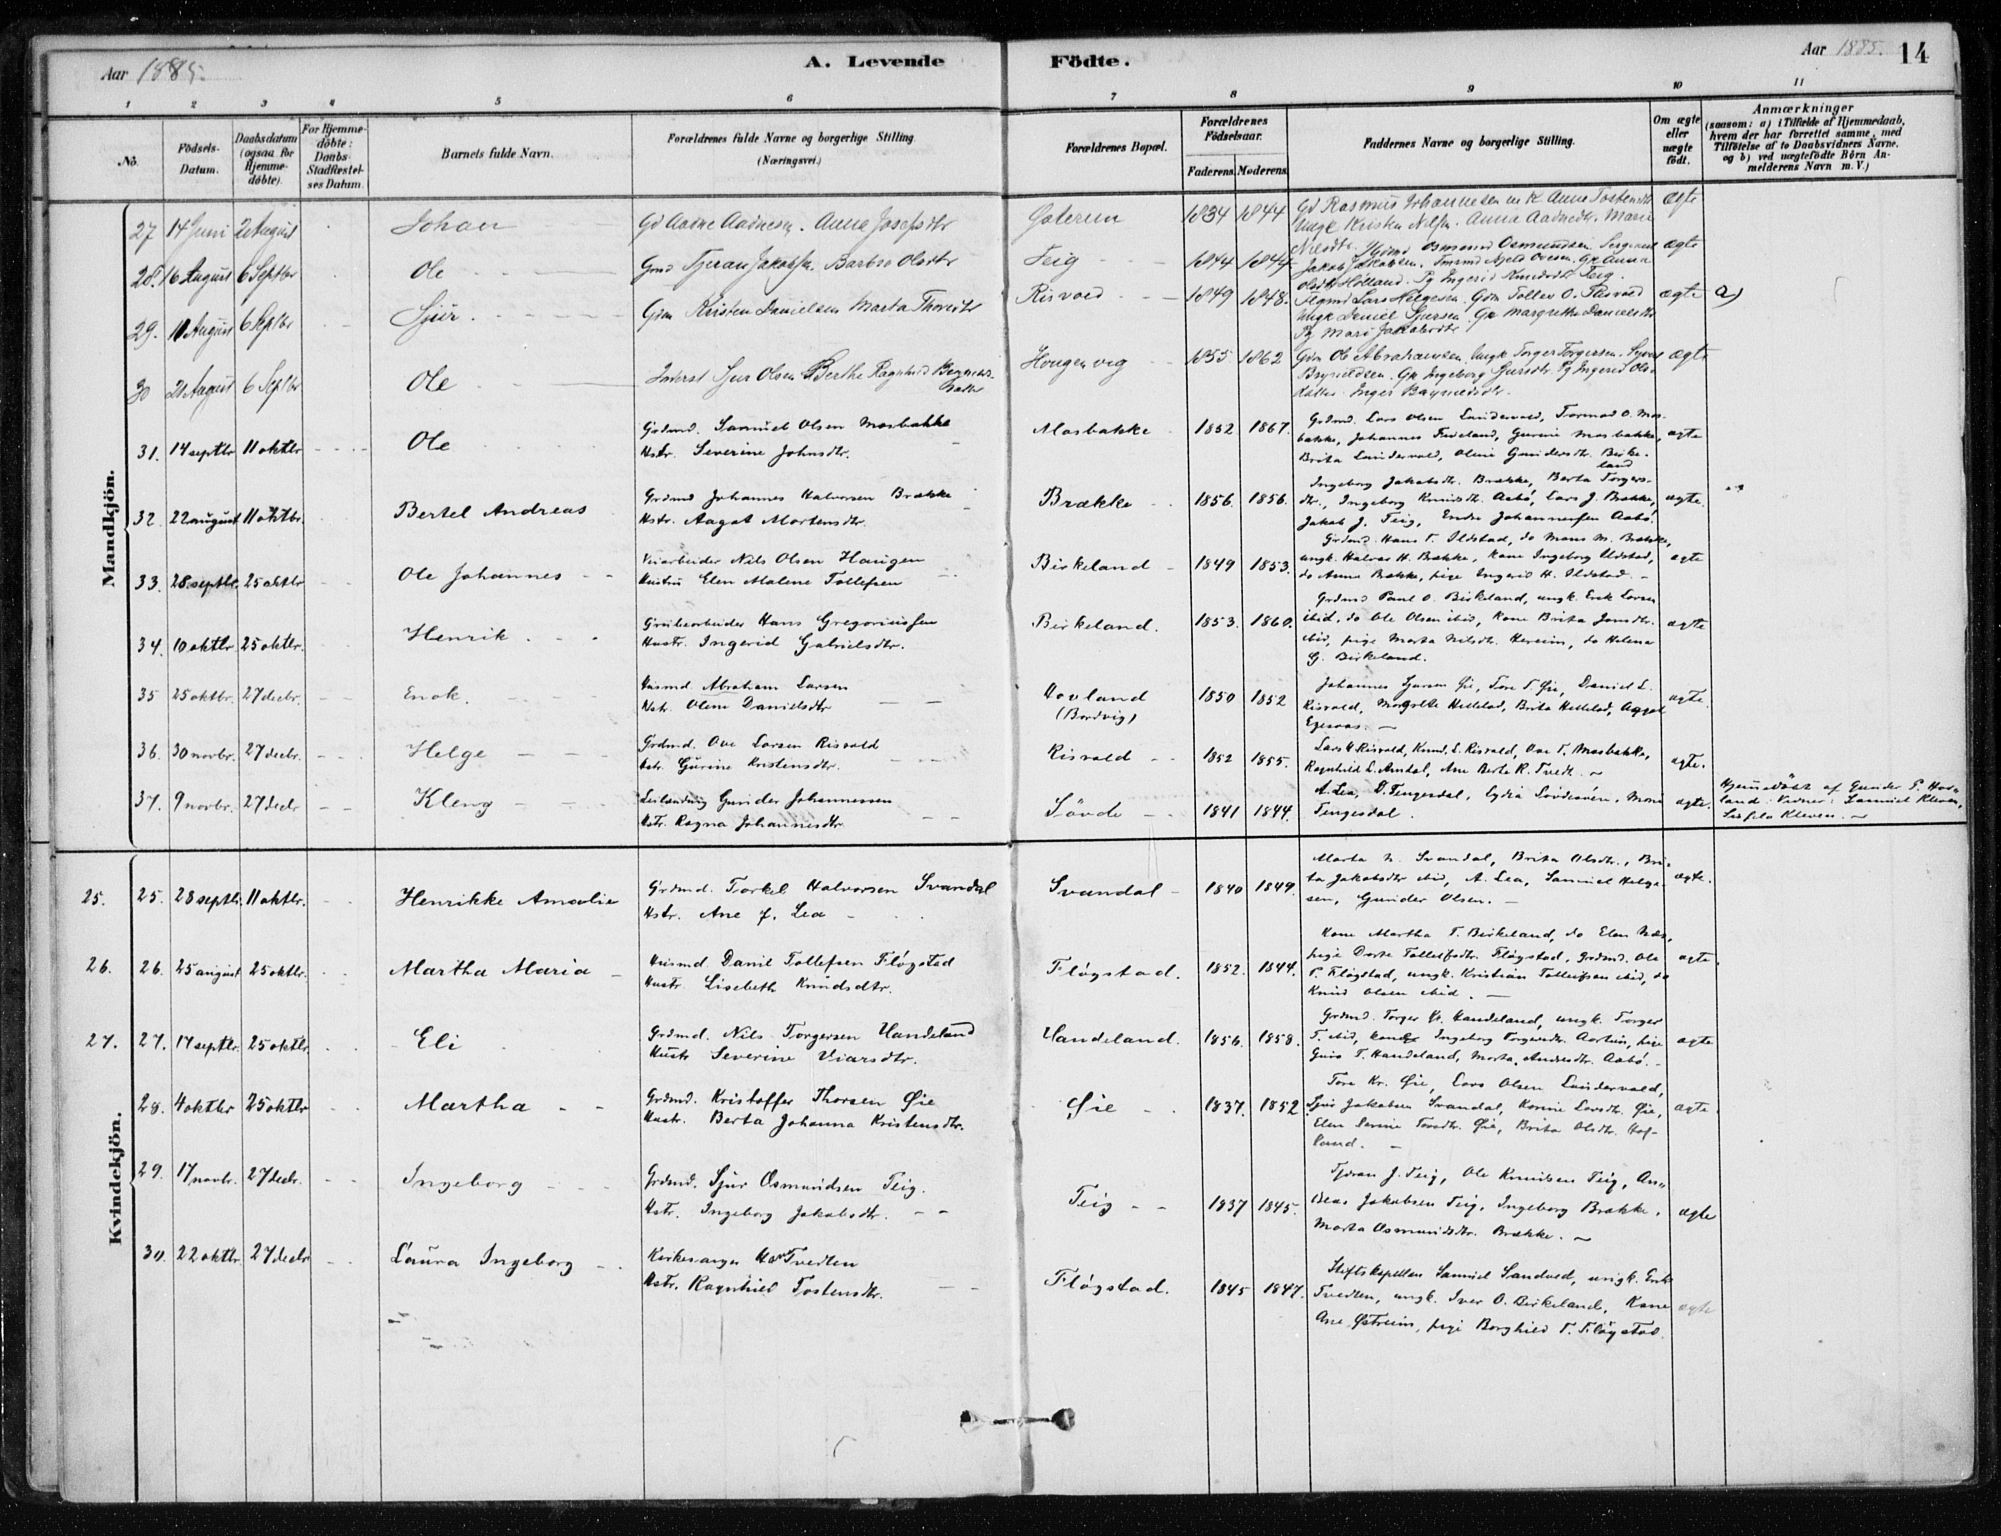 Aar 1885.
A. Levende
Födte.
Aar 1885.
14
1 2 3 4 5 6 7 8 9 10 11
No.
Födsels-Datum.
Daabsdatum (ogsaa for Hjemme-döbte).
For Hjemme-döbte: Daabs-Stadfæstel-ses Datum.
Barnets fulde Navn.
Forældrenes fulde Navne og borgerlige Stilling.
(Næringsvei.)
Forældrenes Bopæl.
Forældrenes Födselsaar.
Faderens. Moderens.
Faddernes Navne og borgerlige Stilling.
Om ægte eller uægte födt.
Anmærkninger
(saasom: a) i Tilfælde af Hjemmedaab, hvem der har forrettet samme, med Tilföielse af to Daabsvidners Navne, og b) ved uægtefödte Börn Anmelderens Navn m. V.)
Mandkjön.
27 14 Juni 2 August Johan
Gd Aadne Aadnesen. Anna Josefsdtr
1834 1844
Gd Rasmus Johannesen
Ungk Kristen Nilsen. Anna Aadnedtr.
ægte
28. 16 August 6 Septbr Ole
Barbro Olsdtr
Teig 1844 1844
Osmund Osmundsen. Sergeant
Jakob Jakobsen.
ægte
29. 11 August 6 Septbr Sjur
Gdm Kristen Danielsen Marta Thoredtr
Risvold 1849 1848.
Lars Helgesen. Gdm Tollev O. Risvold
Ungk Daniel Sjursen. Gk Margrethe Danielsdtr
Pg Mari Jakobsdtr
ægte a)
30 21 August 6 Septbr Ole
Inderst Sjur Olsen Berthe Ragnhild
Hougen vig 1855 1862
Gdm Ole Abrahamsen. Ungk Torger Torgersen.
Gk Ingeborg Sjursdtr Pg Ingerid Ols-
datter.
ægte
31. 14 septbr 11 oktbr Ole
Grdmd. Samuel Olsen Mosbakke
Hstr. Severine Johnsdtr.
Mosbakke 1852 1867.
Grdmd. Lars Olsen Landervold, Tormod O. Mos-
bakke, Johannes Frøland, Gurine Mosbakke,
Brita Landervold, Oline Gundersdtr. Birke-
land
ægte
32. 22 august 11 oktbr. Bertel Andreas
Grdmd Johannes Halvorsen Brække
Hstr. Aagot Mortensdtr.
Brække 1856. 1856.
Ingeborg Jakobsdtr. Brække, Berta Torgers-
dtr., Ingeborg Knudsdtr. Aabö, Lars J. Brække,
Jakob J. Teig, Endre Johannessen Aabö.
ægte.
33. 28 septbr. 25 oktbr Ole Johannes
Veiarbeider Nils Olsen Haugen
Hustru Elen Malene Tollefsen
Birkeland 1849 1853.
Grdmd. Hans T. Ilstad, do Mons M. Brække,
ungk. Halvor H. Brække, Kone Ingeborg Ilstad,
do Anna Brække, pige Ingerid H. Ilstad.
ægte
34. 10 oktbr. 25 oktbr. Henrik
Grubearbeider Hans Gregoriussen
Hustr. Ingerid Gabrielsdtr.
Birkeland. 1853. 1860.
Grdmd Paul O. Birkeland, ungk. Erik Larsen
ibid, do Ole Olsen ibid, Kone Brita Jonsdtr.
ibid, pige Marta Nilsdtr. Hereim, do Helena
G. Birkeland.
ægte
35 25 oktbr. 27 decbr. Enok.
Husmd Abraham Larsen
Hstr. Oline Danielsdtr
Hovland
(Bordvig)
1850 1852
Johannes Sjursen Øie, Tore T. Øie, Daniel L.
Risvold, Margrete Hellelad, Brita Hellelad, Aagot
ægte.
36. 30 novbr. 27 decbr. Helge
Grdmd. Ove Larsen Risvold
Hstr. Gurine Kristensdtr.
Risvold 1852 1855.
Lars H. Risvold, Knud L. Risvold, Ove T. Mosbakke,
Ragnhild L. Amdal, Ane Berta R. Tvedt.
ægte.
37. 9 novbr. 27 decbr Kleng
Leilænding Gunder Johannessen
Hstr. Ragna Johannesdtr.
Søvde 1841 1844.
A. Lea, D. Tengesdal, Lydia
Tengesdal.
ægte.
Hjemmedöbt af Gunder P. Hov-
land: Vidner: Samuel Kleven,
Kvindekjön.
25. 25. 28 septbr. 11 oktbr. Henrikke Amalie
Grdmd. Torkel Halvorsen Svandal
Hstr. Ane J. Lea
Svandal 1840 1849.
Marta N. Svandal, Brita Olsdtr., Bri-
ta Jakobsdtr ibid, A. Lea, Samuel Helge-
sen, Gunder Olsen.
ægte.
26. 26. 25 august 25 oktbr. Martha Maria
Husmd Danil Tollefsen Fløgstad
Hustr. Lisebeth Knudsdtr.
Fløgstad. 1852. 1844.
Kone Martha T. Birkeland, do Elen Næs,
pige Dorte Tollefsdtr. Fløgstad, Grdmd. Ole
T. Fløgstad, ungk. Kristian Tollefsen ibid, do
Knud Olsen ibid.
ægte
27. 27. 17 septbr. 25 oktbr. Eli
Grdmd. Nils Torgersen Handeland
Hustr Severine Viarsdtr.
Handeland. 1856. 1858.
Grdmd. Torger Handeland, ungk. Torger
T. ibid, kone Ingeborg Torgersdtr. Aartun, pige
Guro T. Handeland, Marta Andresdtr. Aabö.
ægte
28. 4 oktbr 25 oktbr Martha
Grdmd. Kristoffer Thorsen Øie
Hustr. Berta Johanna Kristensdtr.
Øie 1837. 1852
Tore Kr. Øie, Lars Olsen Landervold,
Sjur Jakobsen Svandal, Karine Larsdtr. Øie,
Elen Serine Toresdtr. Øie, Brita Olsdtr. Hof-
land.
ægte
29. 17 novbr. 27 decbr. Ingeborg
Grdmd. Sjur Osmundsen Teig.
Hstr. Ingeborg Jakobsdtr.
Teig 1837 1845.
Tjeran J. Teig, Ole Knudsen Teig, An-
dreas Jakobsen Teig, Ingeborg Brække,
Marta Osmundsdtr. Brække.
ægte
30. 22 oktbr 27 decbr Laura Ingeborg
Kirkesanger Tvedten
Hstr. Ragnhild Tostensdtr.
Fløgstad. 1845 1847.
Stiftskapellan Samuel Sandved, ungk. Erik
Tvedten, ungk. Iver O. Birkeland, Kone
Ane Østreim, pige Borghild T. Fløgstad.
ægte